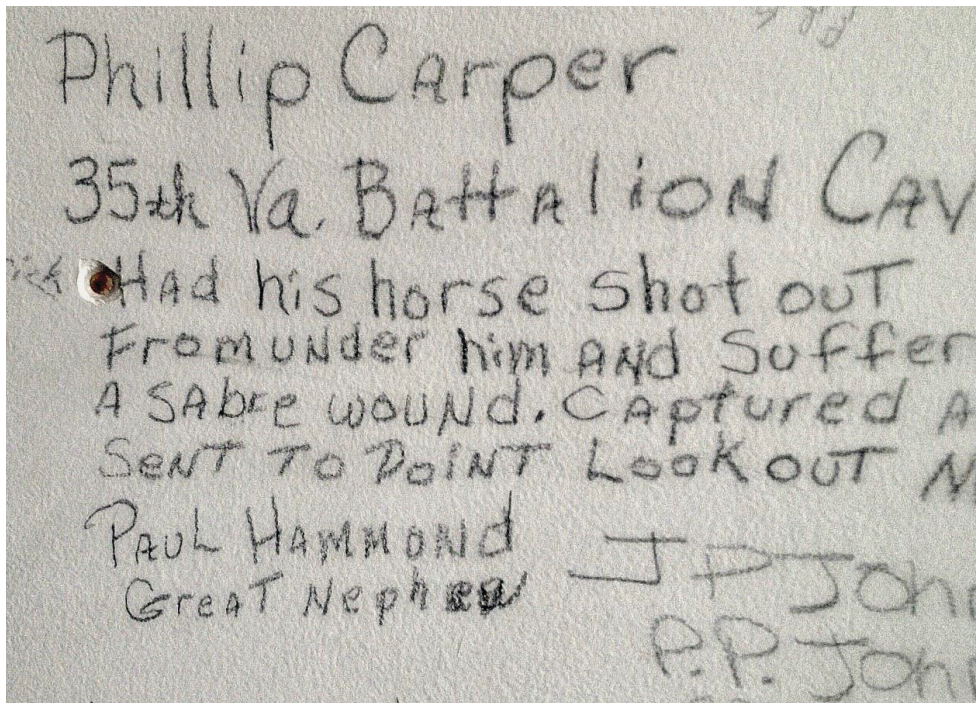 Phillip Carper
35th Va. BATTALION CAV
HAd his horse shot ouT
From uNder him ANd Suffer
A SAbre wouNd. CAptured A
SeNT To PoiNT LookouT N
PAuL HAMMONd
GreAT Nephew
J P John
P.P. John